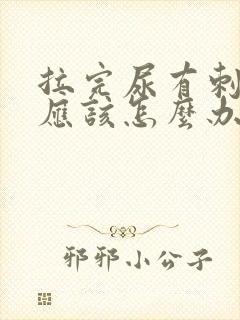 拉完尿有刺
應該怎麼办
邪邪小公子